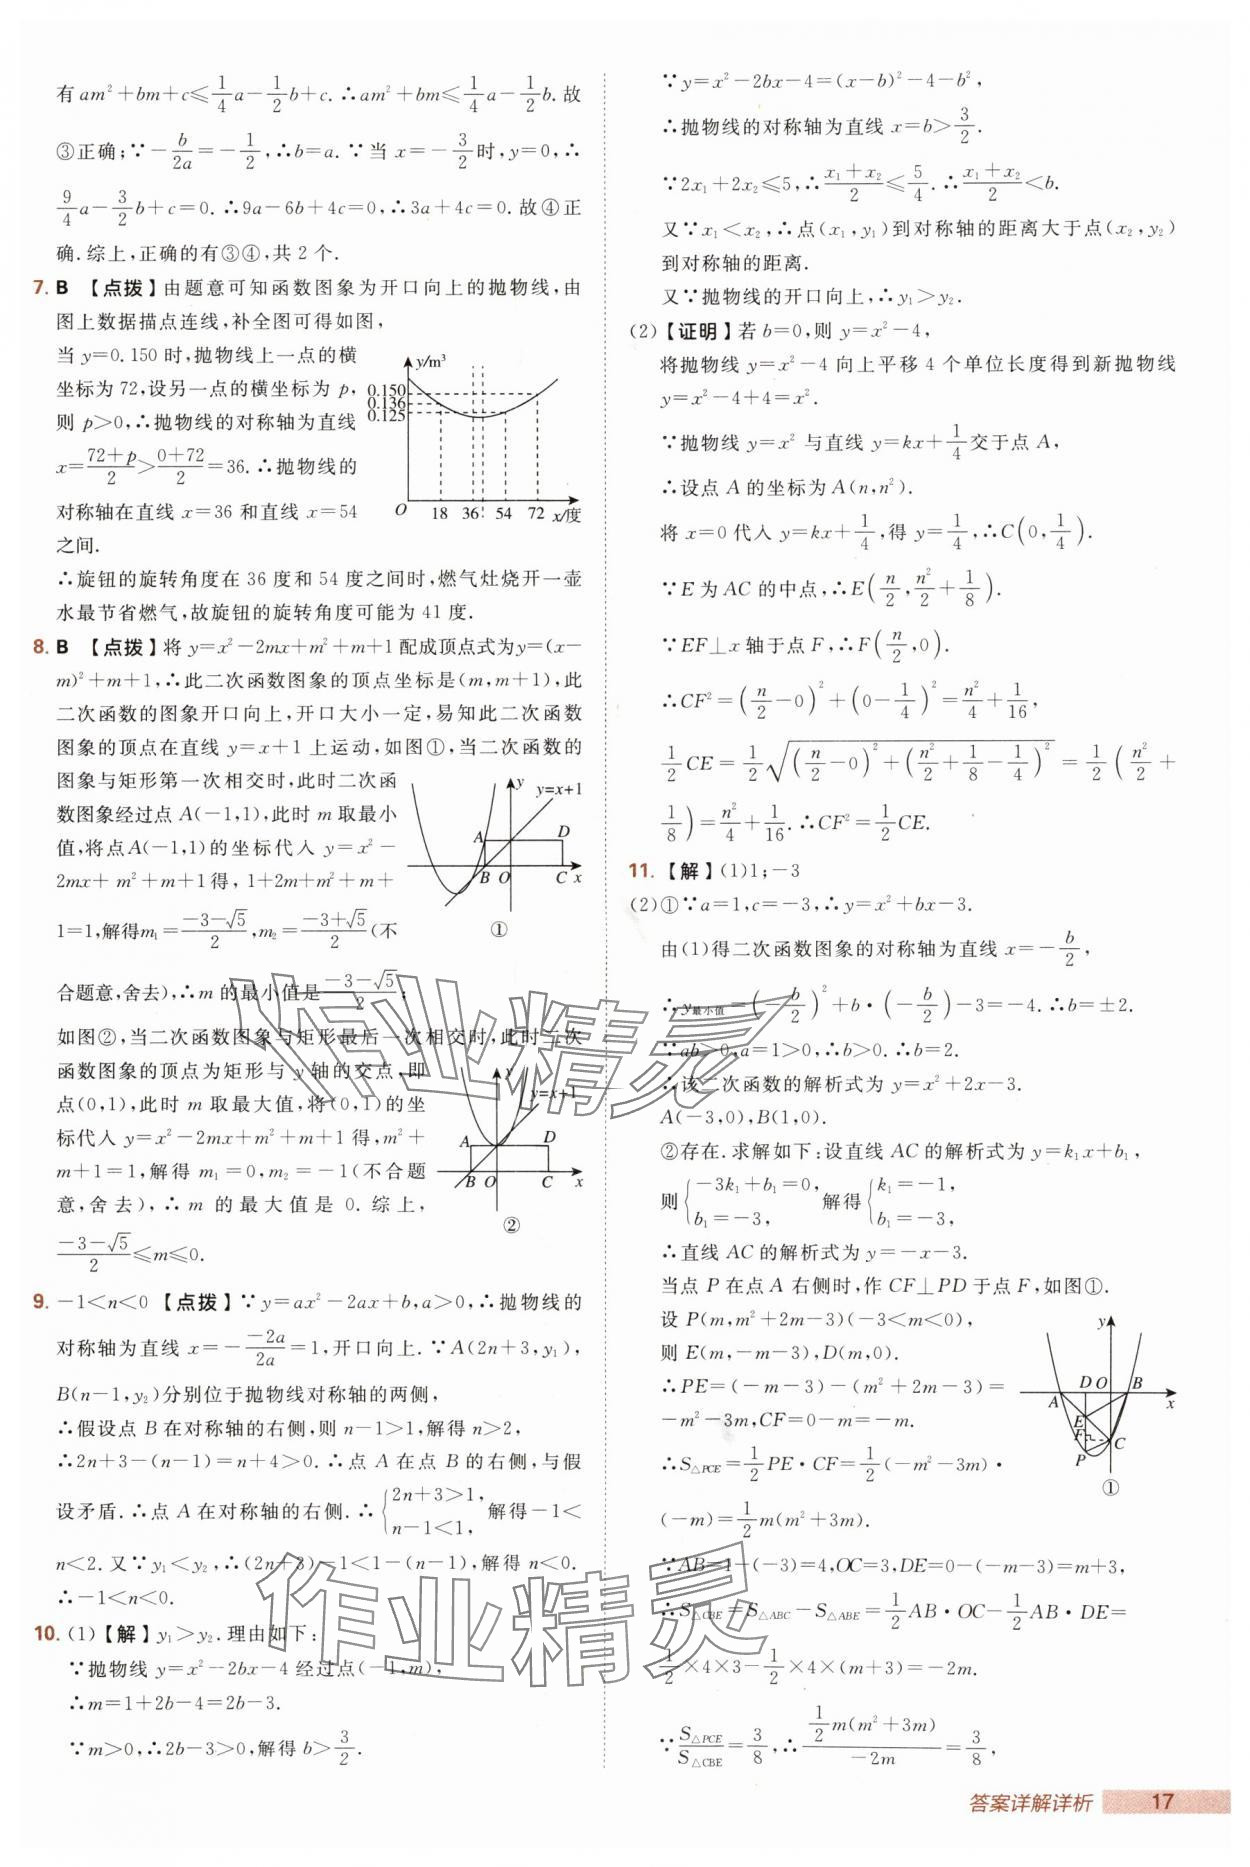 有 am²+bm+c≤1/4a-1/2b+c.∴am²+bm≤1/4a-1/2b.故
③正确;∵-b/2a=-1/2,∴b=a.∵当 x=-3/2时,y=0,∴
9/4a-3/2b+c=0.∴9a-6b+4c=0,∴3a+4c=0.故④正
确.综上,正确的有③④,共 2 个.
7. B 【点拨】由题意可知函数图象为开口向上的抛物线,由
图上数据描点连线,补全图可得如图,
当 y=0.150 时,抛物线上一点的横
坐标为 72,设另一点的横坐标为 p,
则 p>0,∴抛物线的对称轴为直线
x=(72+p)/2>(0+72)/2=36.∴抛物线的
对称轴在直线 x=36 和直线 x=54
之间.
y/m³
0.150
0.136
0.125
O 18 36 54 72 x/度
∴旋钮的旋转角度在 36 度和 54 度之间时,燃气灶烧开一壶
水最节省燃气,故旋钮的旋转角度可能为 41 度.
8. B 【点拨】将 y=x²-2mx+m²+m+1 配成顶点式为y=(x-
m)²+m+1,∴此二次函数图象的顶点坐标是(m,m+1),此
二次函数的图象开口向上,开口大小一定,易知此二次函数
图象的顶点在直线 y=x+1 上运动,如图①,当二次函数的
图象与矩形第一次相交时,此时二次函
数图象经过点 A(-1,1),此时 m 取最小
值,将点A(-1,1)的坐标代入 y=x²-
2mx+m²+m+1得,1+2m+m²+m+
1=1,解得m₁=(-3-√5)/2,m₂=(-3+√5)/2(不
合题意,舍去),∴m 的最小值是(-3-√5)/2;
y y=x+1
A D
B O C x
①
如图②,当二次函数图象与矩形最后一次相交时,此时二次
函数图象的顶点为矩形与 y 轴的交点,即
点(0,1),此时 m 取最大值,将(0,1)的坐
标代入 y=x²-2mx+m²+m+1 得,m²+
m+1=1,解得 m₁=0,m₂=-1(不合题
意,舍去),∴m 的最大值是 0.综上,
(-3-√5)/2≤m≤0.
y
y=x+1
A D
B O C x
②
9. -1<n<0 【点拨】∵y=ax²-2ax+b,a>0,∴抛物线的
对称轴为直线 x=-(-2a)/2a=1,开口向上.∵A(2n+3,y₁),
B(n-1,y₂)分别位于抛物线对称轴的两侧,
∴假设点 B 在对称轴的右侧,则 n-1>1,解得 n>2,
∴2n+3-(n-1)=n+4>0.∴点 A 在点 B 的右侧,与假
设矛盾.∴点 A 在对称轴的右侧.∴{2n+3>1, n-1<1, 解得-1<
n<2.又∵y₁<y₂,∴(2n+3)-1<1-(n-1),解得 n<0.
∴-1<n<0.
10. (1)【解】y₁>y₂.理由如下:
∵抛物线 y=x²-2bx-4 经过点(-1,m),
∴m=1+2b-4=2b-3.
∵m>0,∴2b-3>0,解得 b>3/2.
∵y=x²-2bx-4=(x-b)²-4-b²,
∴抛物线的对称轴为直线 x=b>3/2.
∵2x₁+2x₂≤5,∴(x₁+x₂)/2≤5/4.∴(x₁+x₂)/2<b.
又∵x₁<x₂,∴点(x₁,y₁)到对称轴的距离大于点(x₂,y₂)
到对称轴的距离.
又∵抛物线的开口向上,∴y₁>y₂.
(2)【证明】若 b=0,则 y=x²-4,
将抛物线 y=x²-4 向上平移 4 个单位长度得到新抛物线
y=x²-4+4=x².
∵抛物线 y=x² 与直线 y=kx+1/4交于点 A,
∴设点 A 的坐标为 A(n,n²).
将 x=0 代入 y=kx+1/4,得 y=1/4,∴C(0,1/4).
∵E 为 AC 的中点,∴E(n/2,n²/2+1/8).
∵EF⊥x 轴于点 F,∴F(n/2,0).
∴CF²=(n/2-0)²+(0-1/4)²=n²/4+1/16,
1/2CE=1/2√((n/2-0)²+(n²/2+1/8-1/4)²)=1/2(n²/2+
1/8)=n²/4+1/16.∴CF²=1/2CE.
11. 【解】(1)1;-3
(2)①∵a=1,c=-3,∴y=x²+bx-3.
由(1)得二次函数图象的对称轴为直线 x=-b/2,
∴y最小值=(-b/2)²+b·(-b/2)-3=-4.∴b=±2.
∵ab>0,a=1>0,∴b>0.∴b=2.
∴该二次函数的解析式为 y=x²+2x-3.
A(-3,0),B(1,0).
②存在.求解如下:设直线 AC 的解析式为 y=k₁x+b₁,
则{-3k₁+b₁=0, b₁=-3, 解得{k₁=-1, b₁=-3,
∴直线 AC 的解析式为 y=-x-3.
当点 P 在点 A 右侧时,作 CF⊥PD 于点 F,如图①.
设 P(m,m²+2m-3)(-3<m<0),
则 E(m,-m-3),D(m,0).
∴PE=(-m-3)-(m²+2m-3)=
-m²-3m,CF=0-m=-m.
∴S△PCE=1/2PE·CF=1/2(-m²-3m)·
(-m)=1/2m(m²+3m).
y
A D O B x
E
F
P C
①
∵AB=1-(-3)=4,OC=3,DE=0-(-m-3)=m+3,
∴S△CBE=S△ABC-S△ABE=1/2AB·OC-1/2AB·DE=
1/2×4×3-1/2×4×(m+3)=-2m.
∵S△PCE/S△CBE=3/8,∴(1/2m(m²+3m))/(-2m)=3/8,
作业精灵
作业精灵
答案详解详析 17